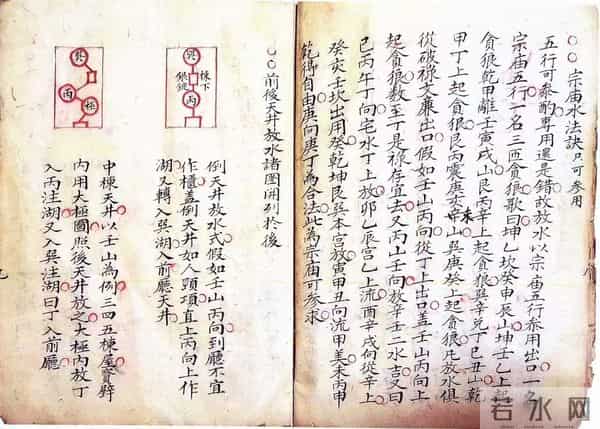 〇〇宗庙水法訣只可叅用
五行可叅酌專用還是錯故放水以宗庙五行叅用出口一名
宗庙五行一名三匝貪狼歌曰坤乙坎癸申辰山坤壬乙上起
貪狼乾甲離壬寅戌山艮丙辛上起貪狼巽辛兌丁巳丑山乾
甲丁上起貪狼艮丙震庚亥未山巽庚癸上起貪狼凡放水俱
從破祿文廉出口假如壬山丙向從丁上出口盖壬山丙向上
起貪狼数至丁是祿存宜去又丙山壬向放辛壬二水吉又曰
巳丙午丁向宅水丁上放卯乙辰宮乙上流酉辛戌向從辛上
癸亥壬坎出用癸乾坤艮巽本宮放寅甲丑向流甲美未丙申
自由庚向庚丁為合法此為宗庙可参求
〇〇前後天井放水諸圖開列於後
巽
棟下
銀錠
丙
例天井放水式假如壬山丙向到廳不宜
作櫃盖倒天井如人頸項直上丙向上作
湖又轉入巽湖入前廳天井
巽
丙
極
中棟天井以壬山為例三四五棟屋實劈
内用太極圖照後天井放之大極内放丁
入丙注湖又入巽注湖曰丁入前廳
若水网